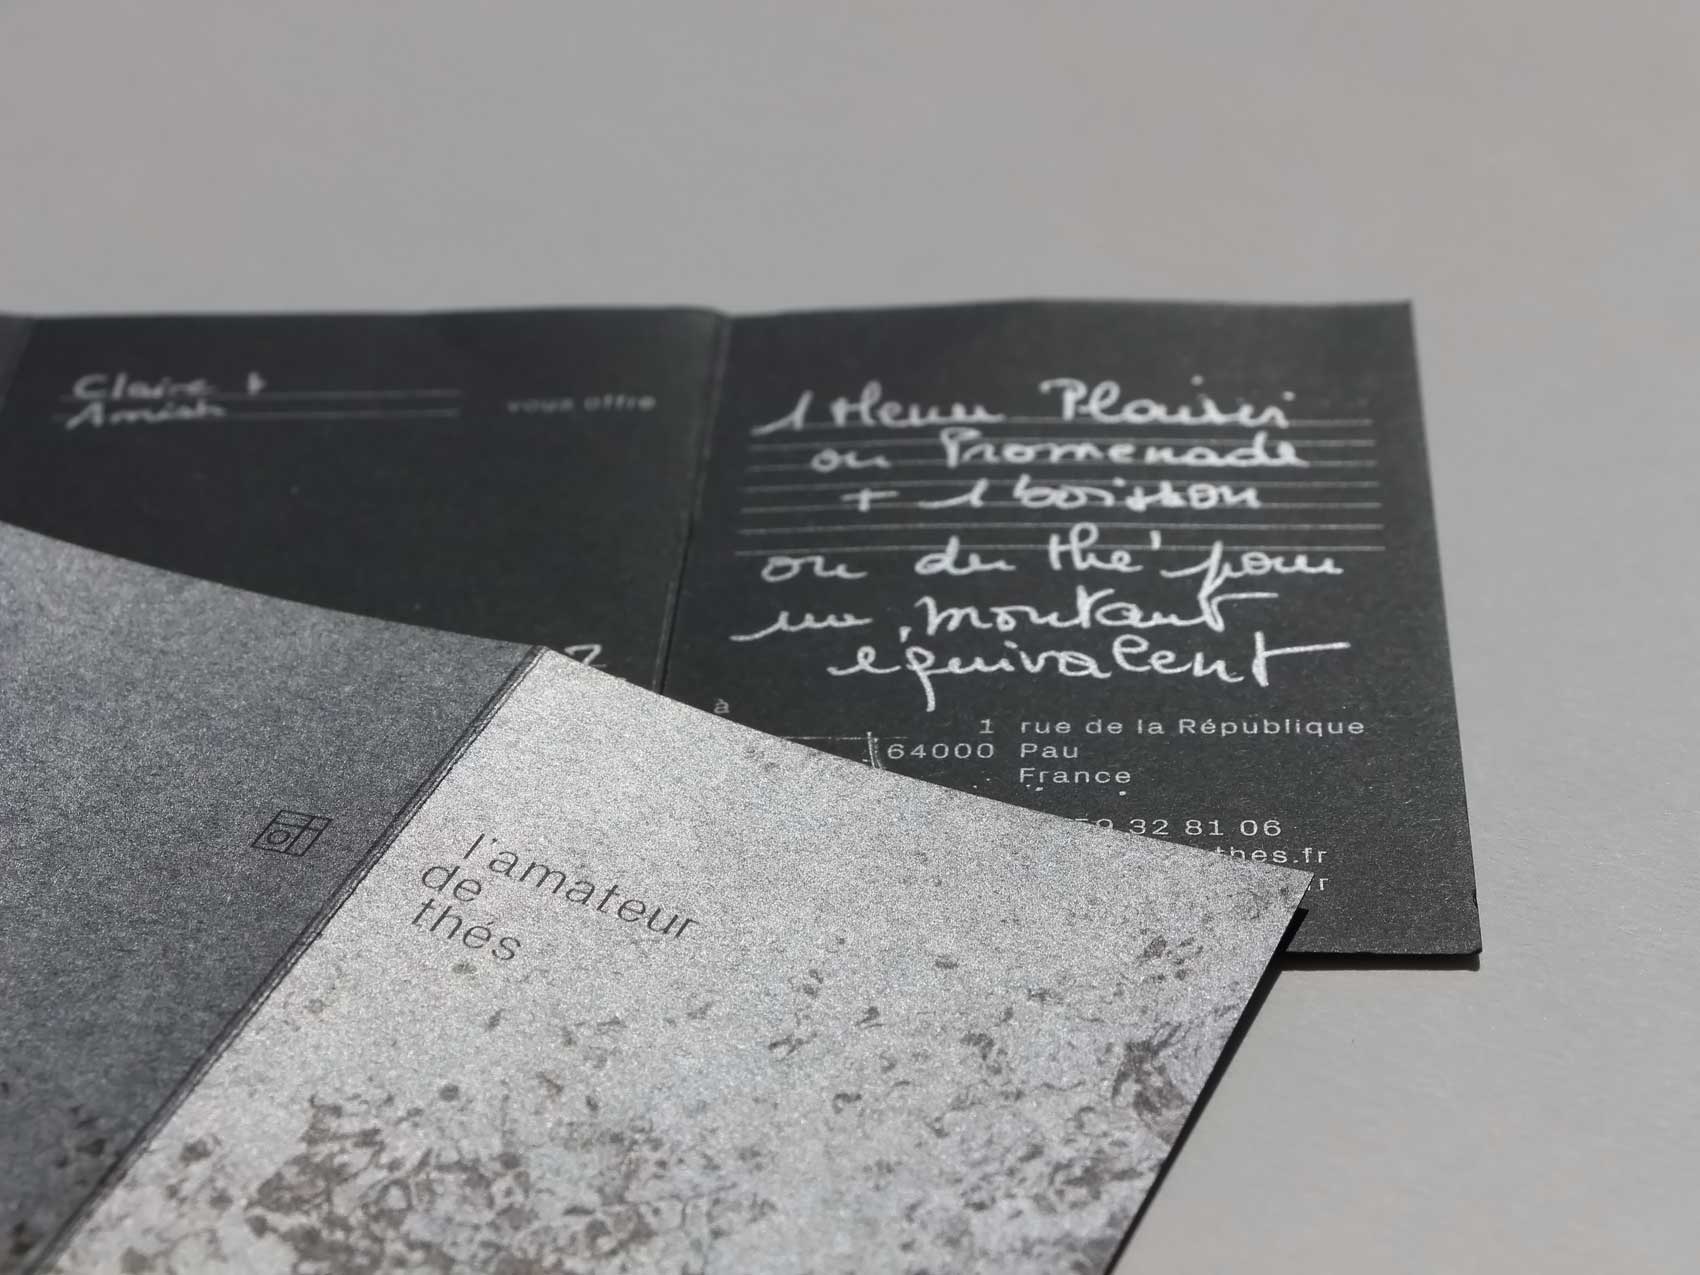 Claire &
vous offre
1 Menu Plaisir
ou Promenade
+ 1 boisson
ou du thé pour
un montant
équivalent
à
1 rue de la République
64000 Pau
France
59 32 81 06
thes.fr
.fr
l'amateur
de
thés